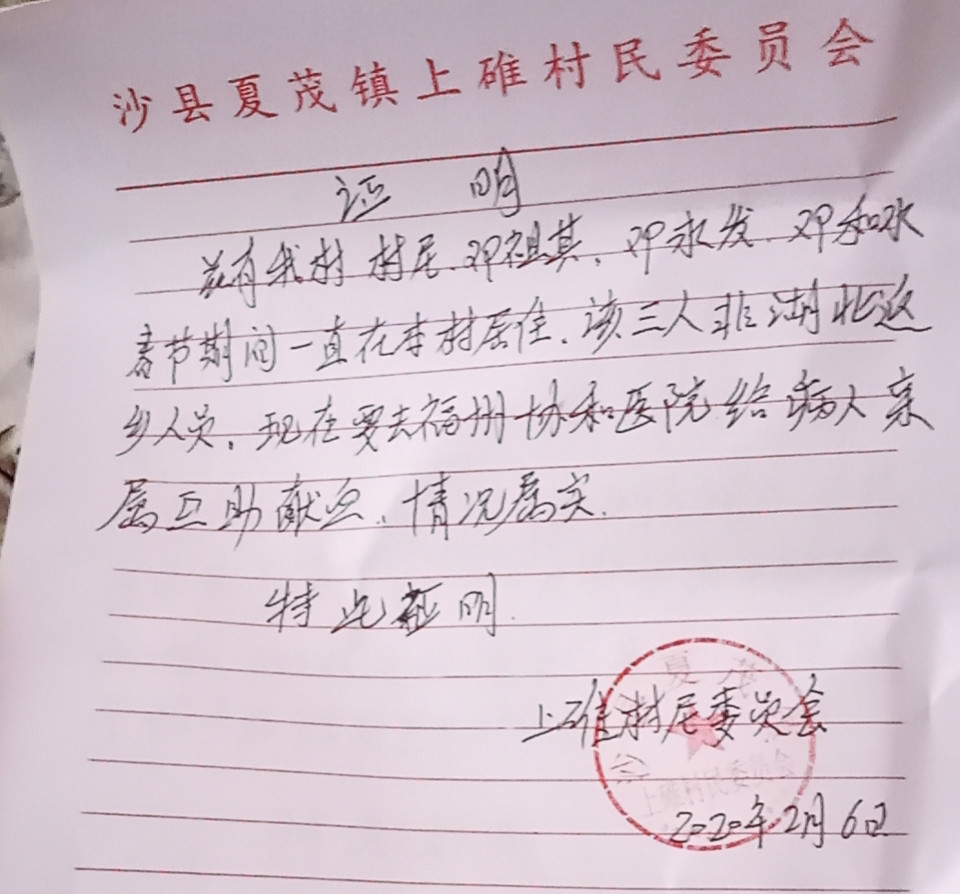 沙县夏茂镇上碓村民委员会
证 明
兹有我村村民、邓祖其、邓永发、邓和水
春节期间一直在本村居住、该三人非湖北返
乡人员、现在要去福州协和医院给病人亲
属互助献血、情况属实.
特此证明.
上碓村民委员会
2020年2月6日
夏茂
上碓村民委员会